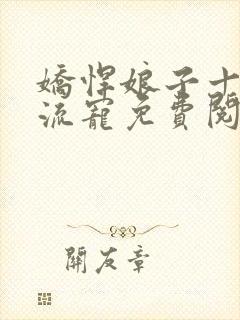 嬌悍娘子十
流寵免費閱
開友章